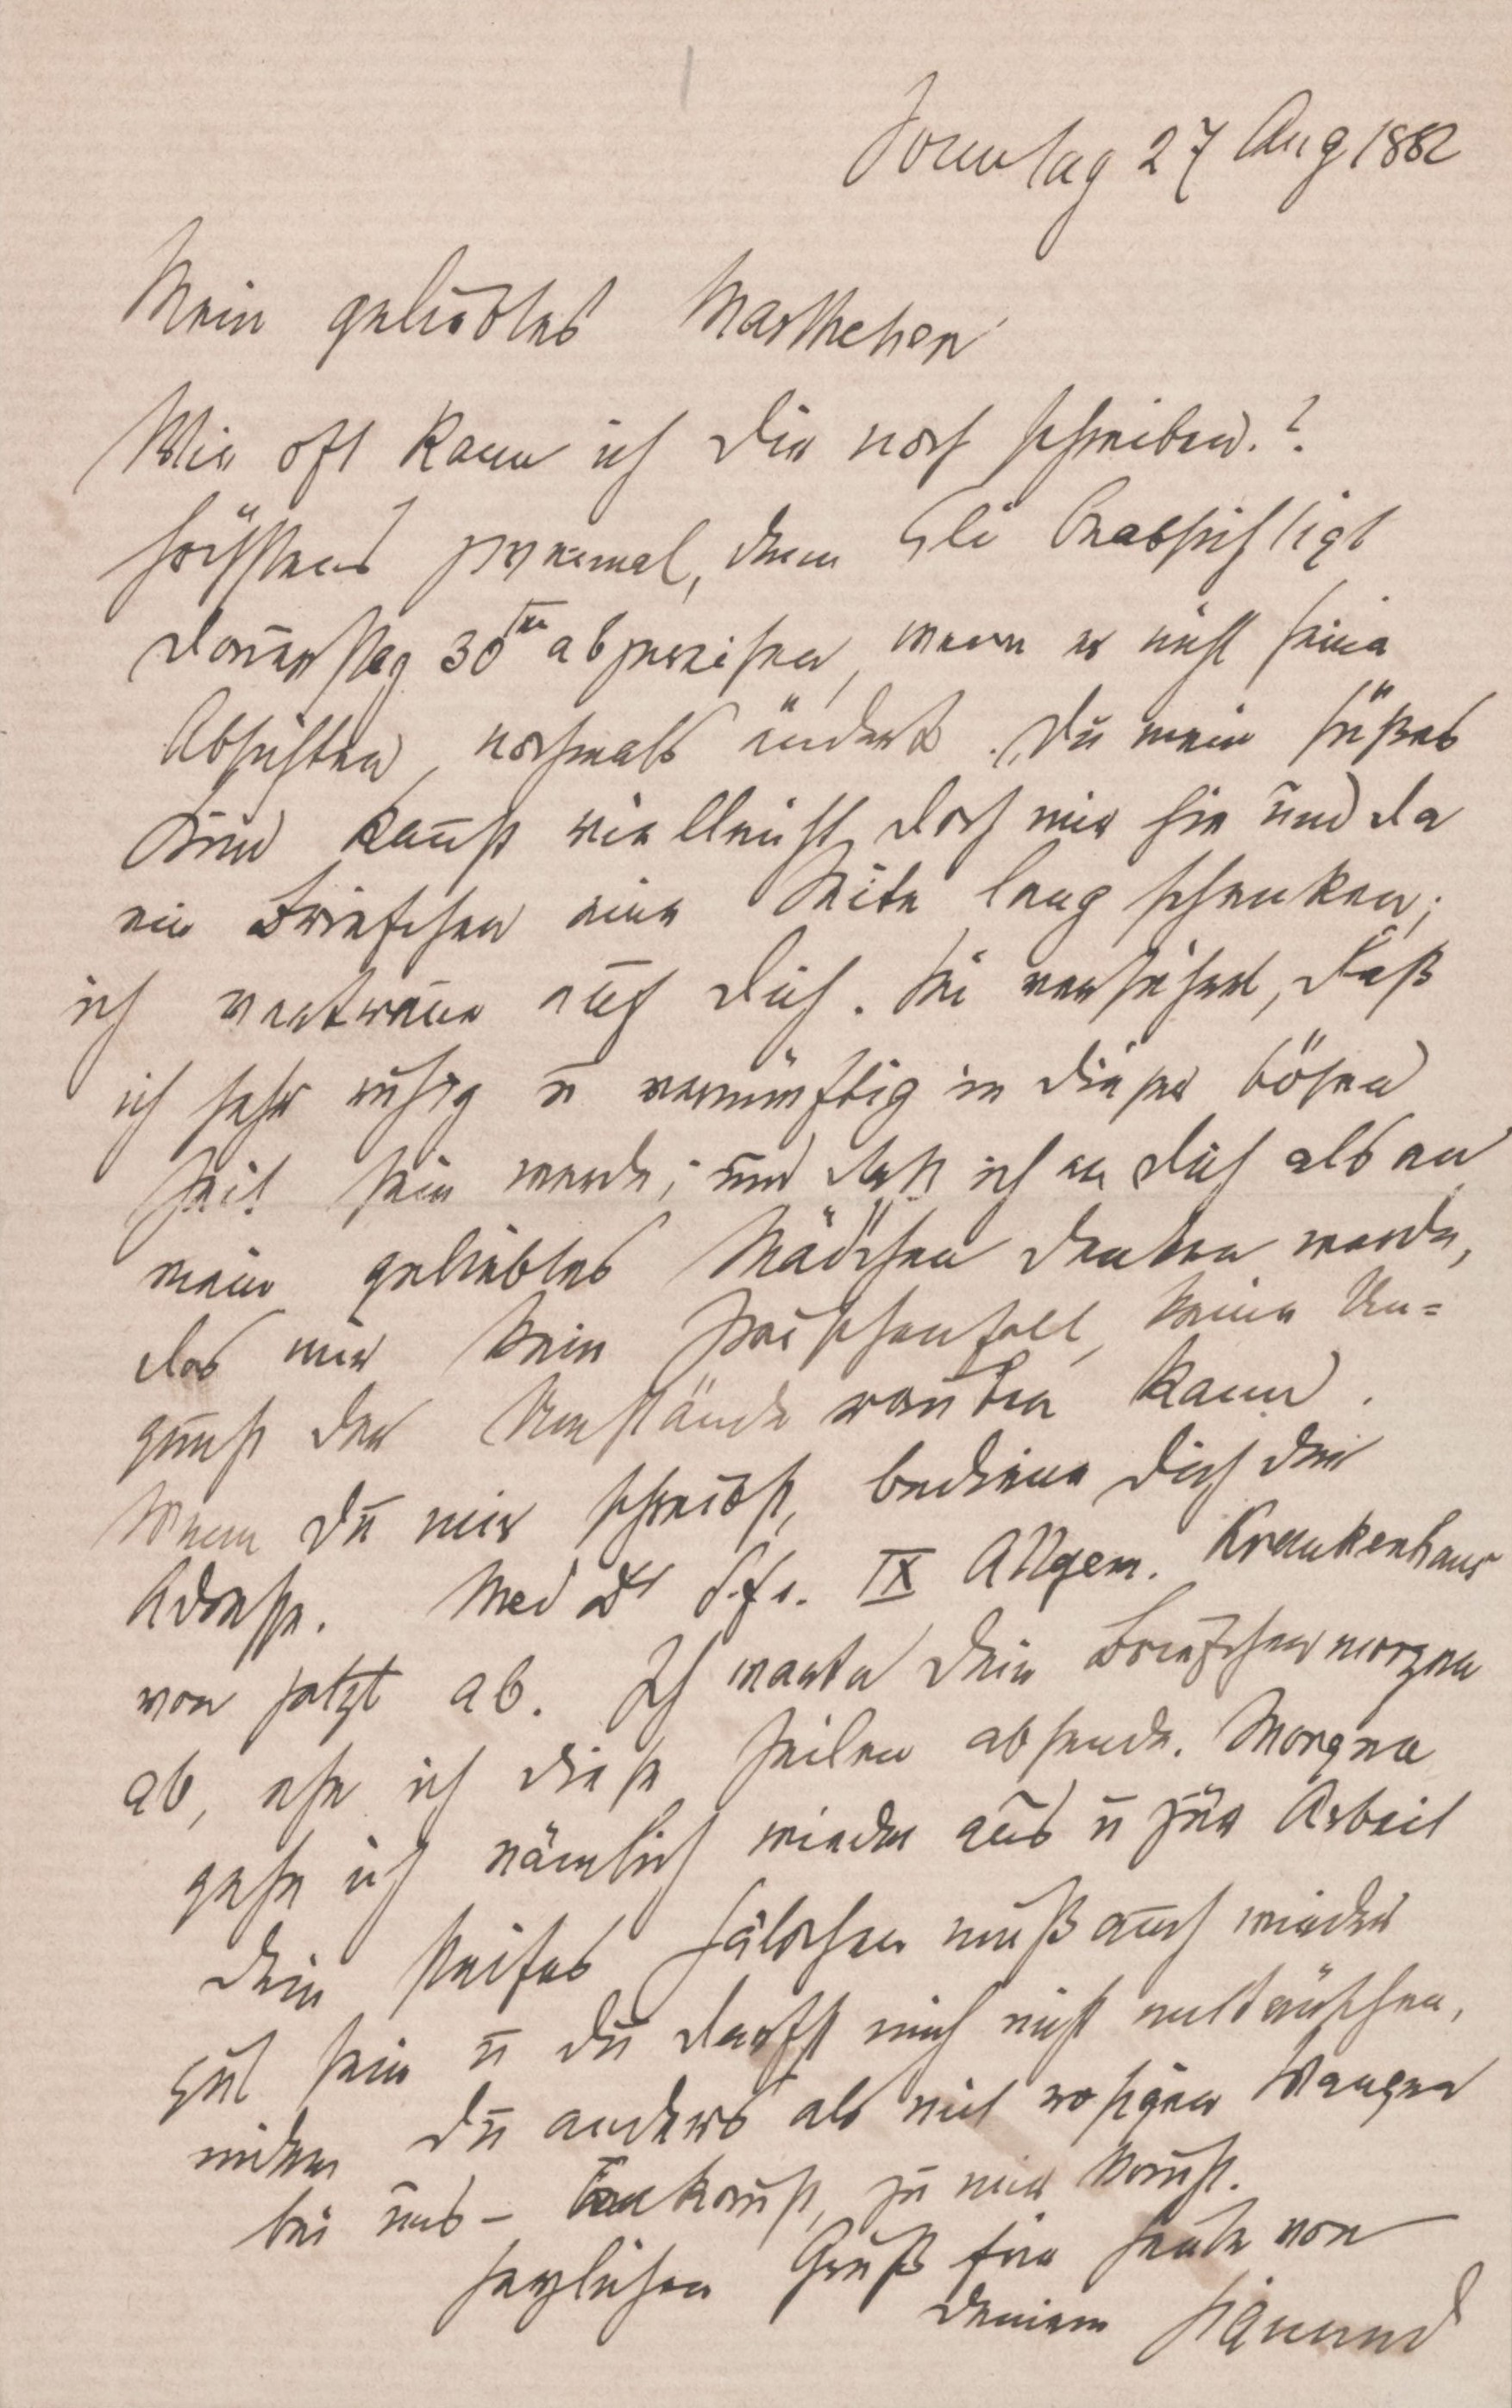 Sonntag 27 Aug 1882
Mein geliebtes Marthchen
Wie oft kann ich Dir noch schreiben.?
Höchstens zweimal, denn Eli beabsichtigt
Donnerstag 30ten abzureisen, wenn er nicht seine
Absichten nochmals ändert. Du mein süßes
Kind kannst vielleicht doch mir hie und da
ein Briefchen eine Seite lang schenken;
ich vertraue auf Dich. Sei versichert, daß
ich sehr ruhig u vernünftig in dieser bösen
Zeit sein werde; und daß ich an Dich als an
mein geliebtes Mädchen denken werde,
das mir kein Zwischenfall, keine Un=
gunst der Umstände rauben kann.
Wenn Du mir schreibst, bediene Dich der
Adresse. Med Dr S. Fr. IX Allgem. Krankenhaus
von jetzt ab. Ich warte Dein Briefchen morgen
ab, ehe ich diese Zeilen absende. Morgen
gehe ich nämlich wieder aus u zur Arbeit
Dein steifes Hälschen muß auch wieder
gut sein u Du darfst mich nicht enttäuschen,
indem Du anders als mit rosigen Wangen
bei uns – ankommst, zu mir kommst.
Herzlichen Gruß für heute von
Deinem Sigmund